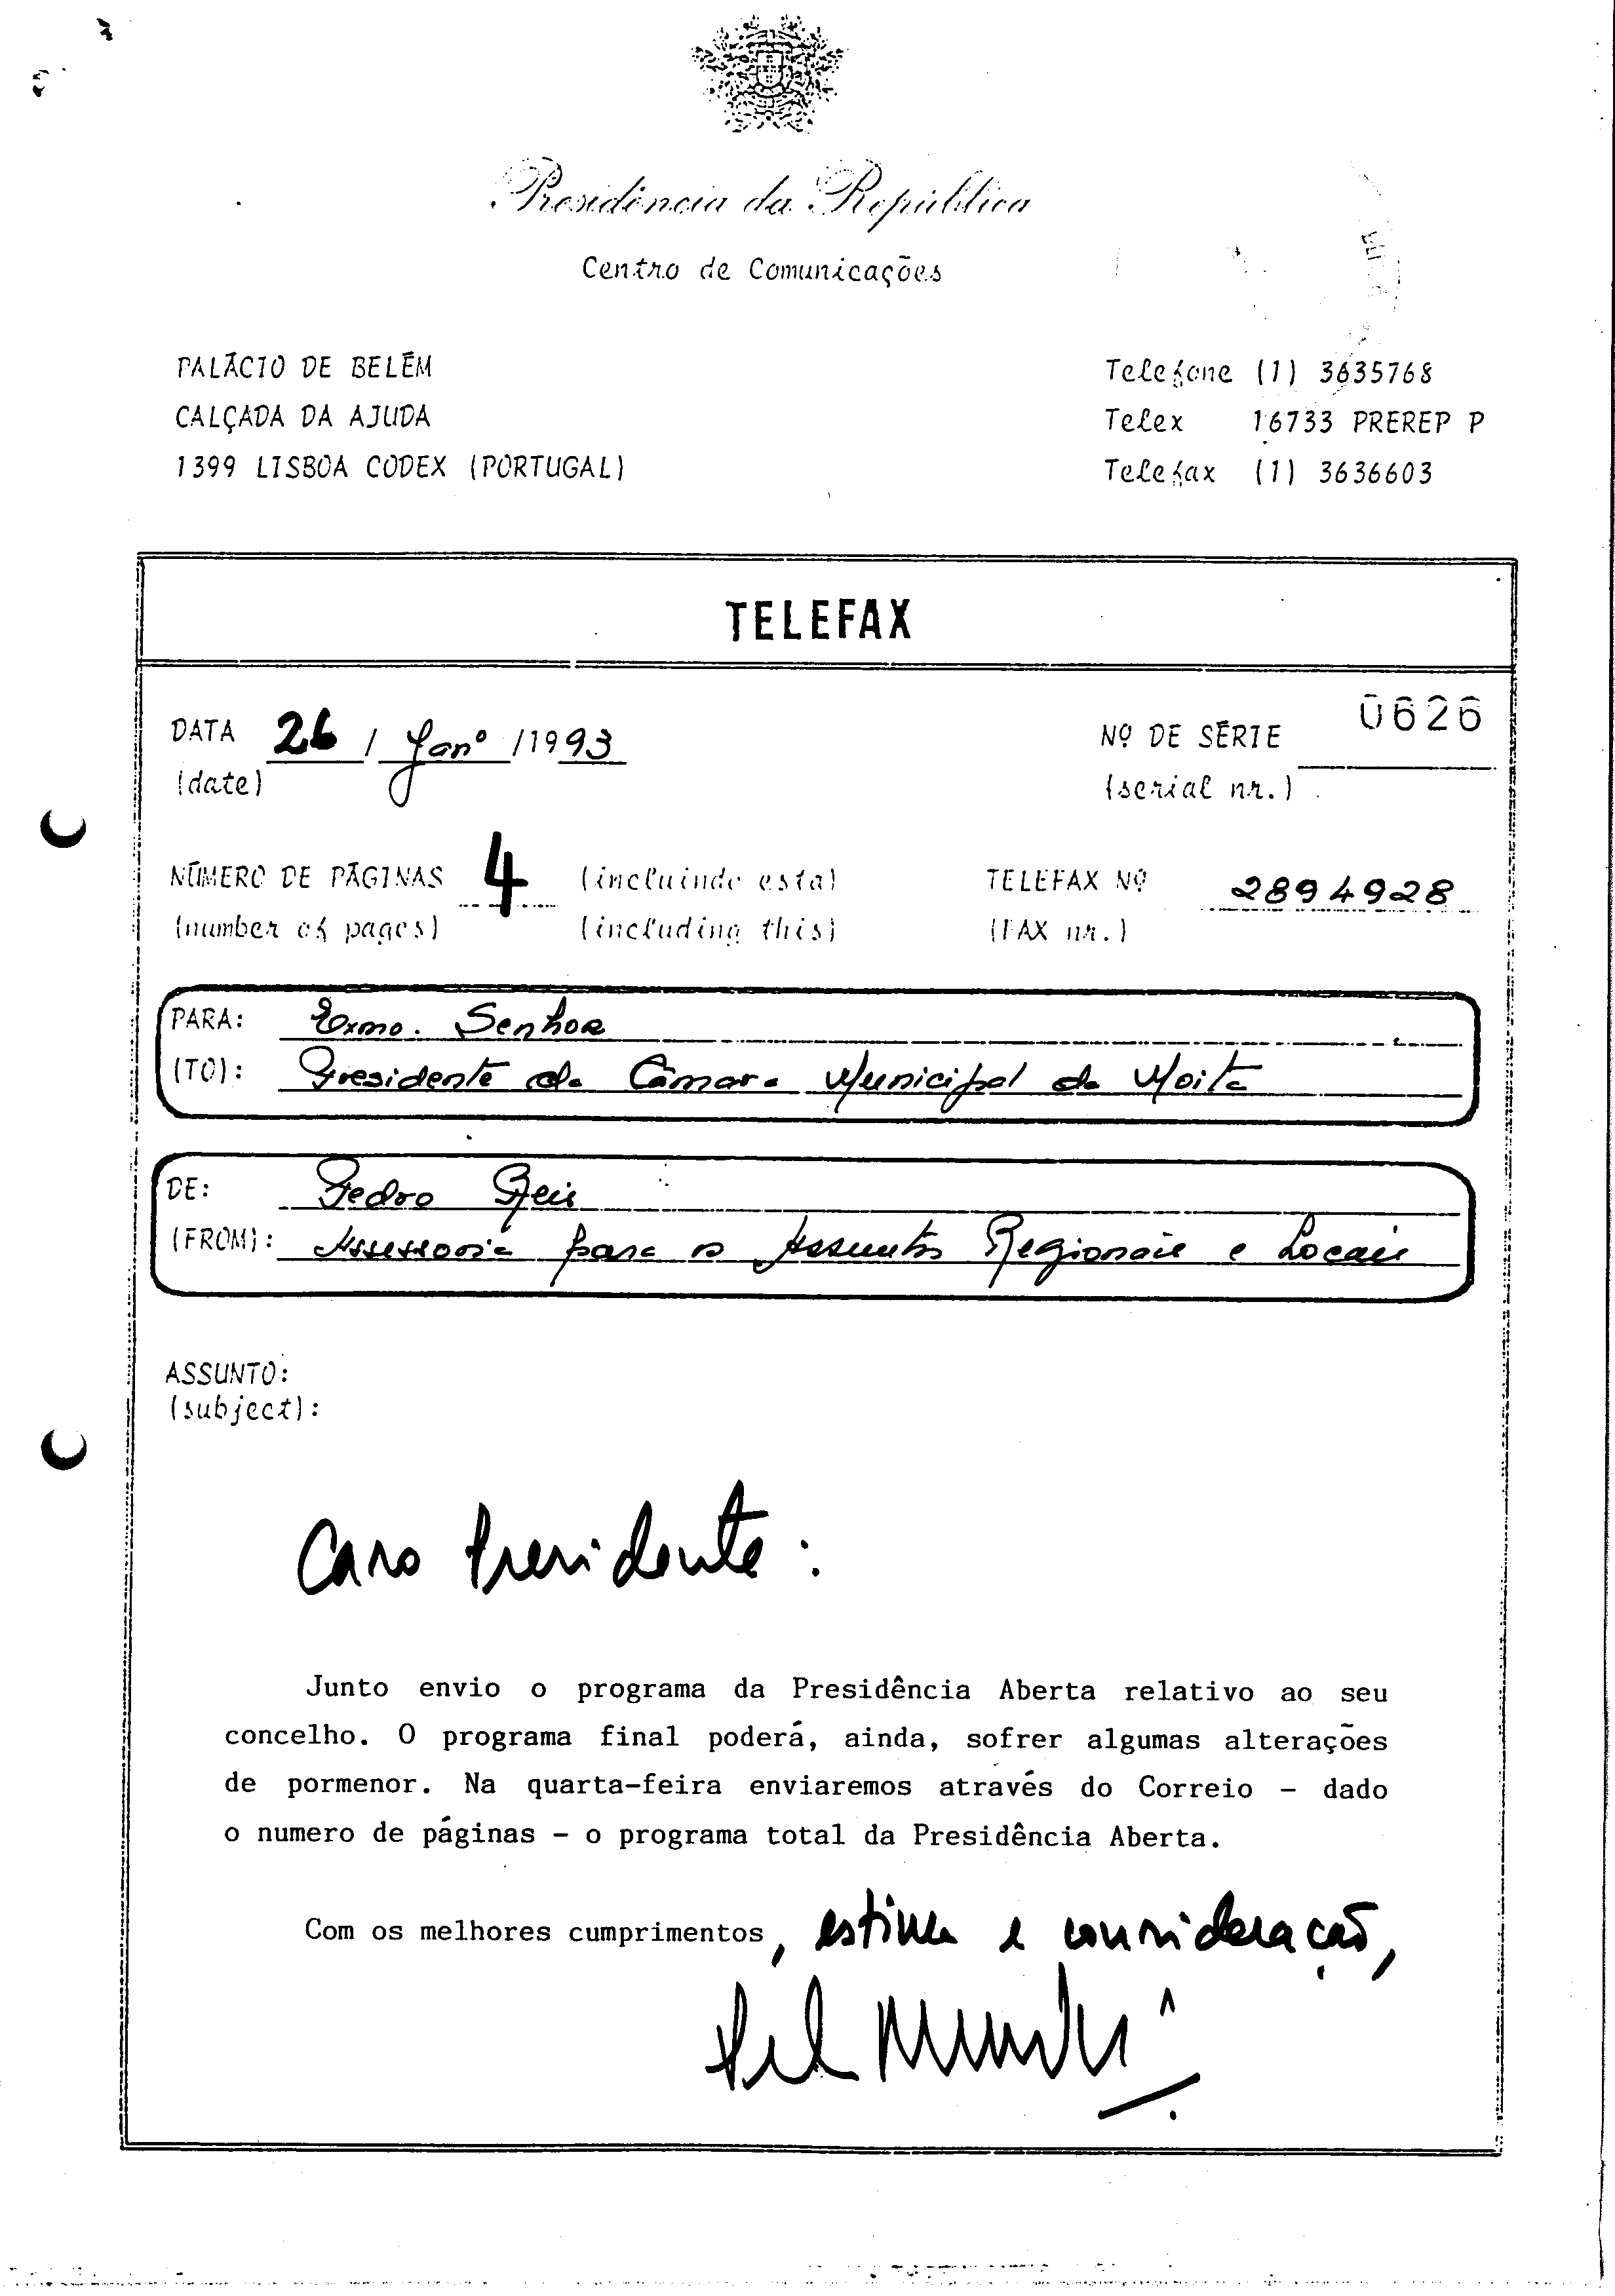 Presidência da República
Centro de Comunicações
PALÁCIO DE BELÉM
CALÇADA DA AJUDA
1399 LISBOA CODEX (PORTUGAL)
Telefone (1) 3635768
Telex 16733 PREREP P
Telefax (1) 3636603
TELEFAX
DATA 26 / Janº /1993
(date)
Nº DE SÉRIE 0626
(serial nr.)
NÚMERO DE PÁGINAS 4 (incluindo esta)
(number of pages) (including this)
TELEFAX Nº 2894928
(FAX nr.)
PARA: Exmo. Senhor
(TO): Presidente da Câmara Municipal da Moita
DE: Pedro Reis
(FROM): Assessoria para os Assuntos Regionais e Locais
ASSUNTO:
(subject):
Caro Presidente:
Junto envio o programa da Presidência Aberta relativo ao seu
concelho. O programa final poderá, ainda, sofrer algumas alterações
de pormenor. Na quarta-feira enviaremos através do Correio - dado
o numero de páginas - o programa total da Presidência Aberta.
Com os melhores cumprimentos, estima e consideração,